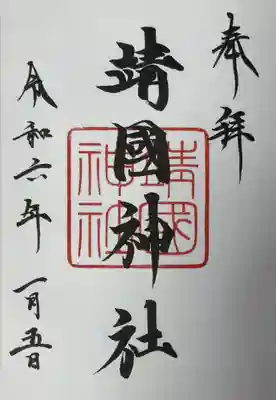 奉拝
靖國神社
靖国神社
令和六年 一月五日